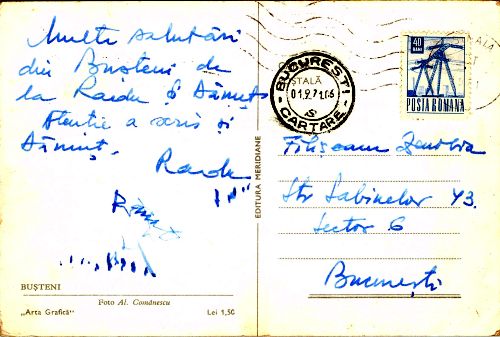 Multe salutări
din Bușteni de
la Radu și Dănuț
Atenție a scris și
Dănuț.
Radu
BUȘTENI
Foto Al. Comănescu
„Arta Grafică"
Lei 1,50
EDITURA MERIDIANE
BUCUREȘTI
01.9.71
CARTARE
40
BANI
POSTA ROMANA
Zenobia
Str Sabinelor 43.
Sector 6
București